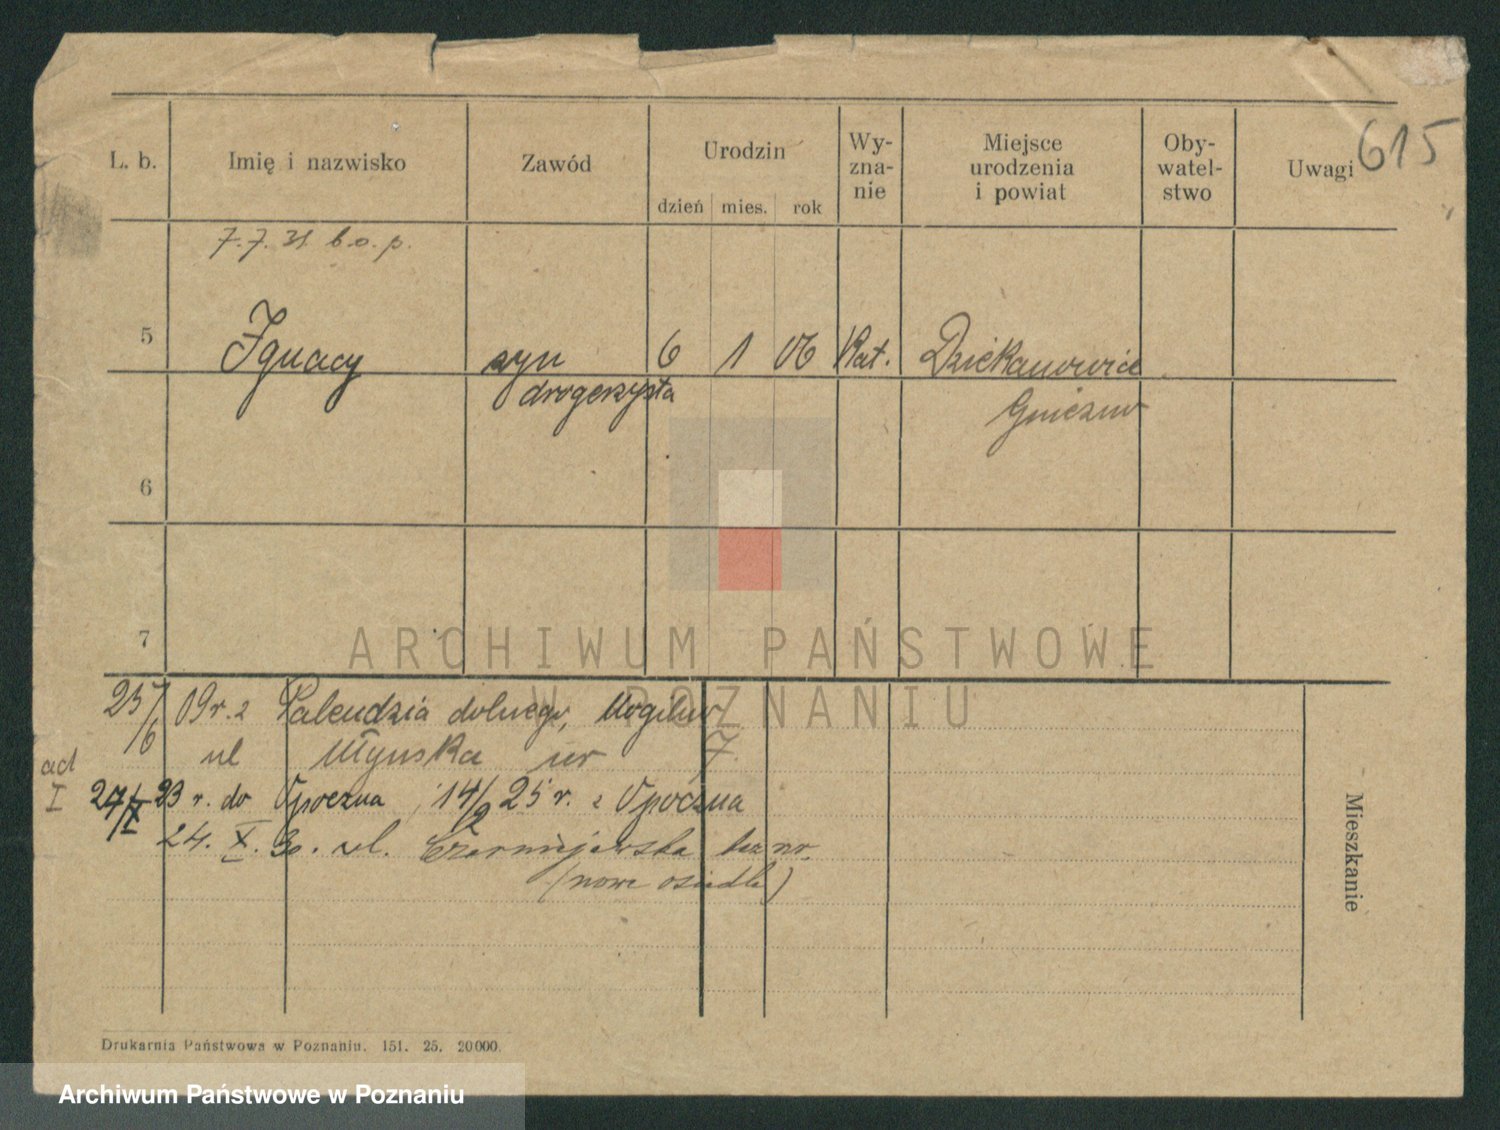 615
L. b. Imię i nazwisko Zawód Urodzin Wy-zna-nie Miejsce urodzenia i powiat Oby-watel-stwo Uwagi
dzień mies. rok
7.7.31 b.o.p.
5 Ignacy syn 6 1 06 Kat. Dziekanowice
drogerzysta Gniezno
6
7
ARCHIWUM PAŃSTWOWE
W POZNANIU
25/6 09 r. z Palendzia dolnego, Mogilno
ul Młyńska nr 7.
ad I 27/X 23 r. do Opoczna, 14/2 25 r. z Opoczna
24. X. 30. ul. Czerniejewska bez nr.
(nowe osiedle)
Mieszkanie
Drukarnia Państwowa w Poznaniu. 151. 25. 20000.
Archiwum Państwowe w Poznaniu